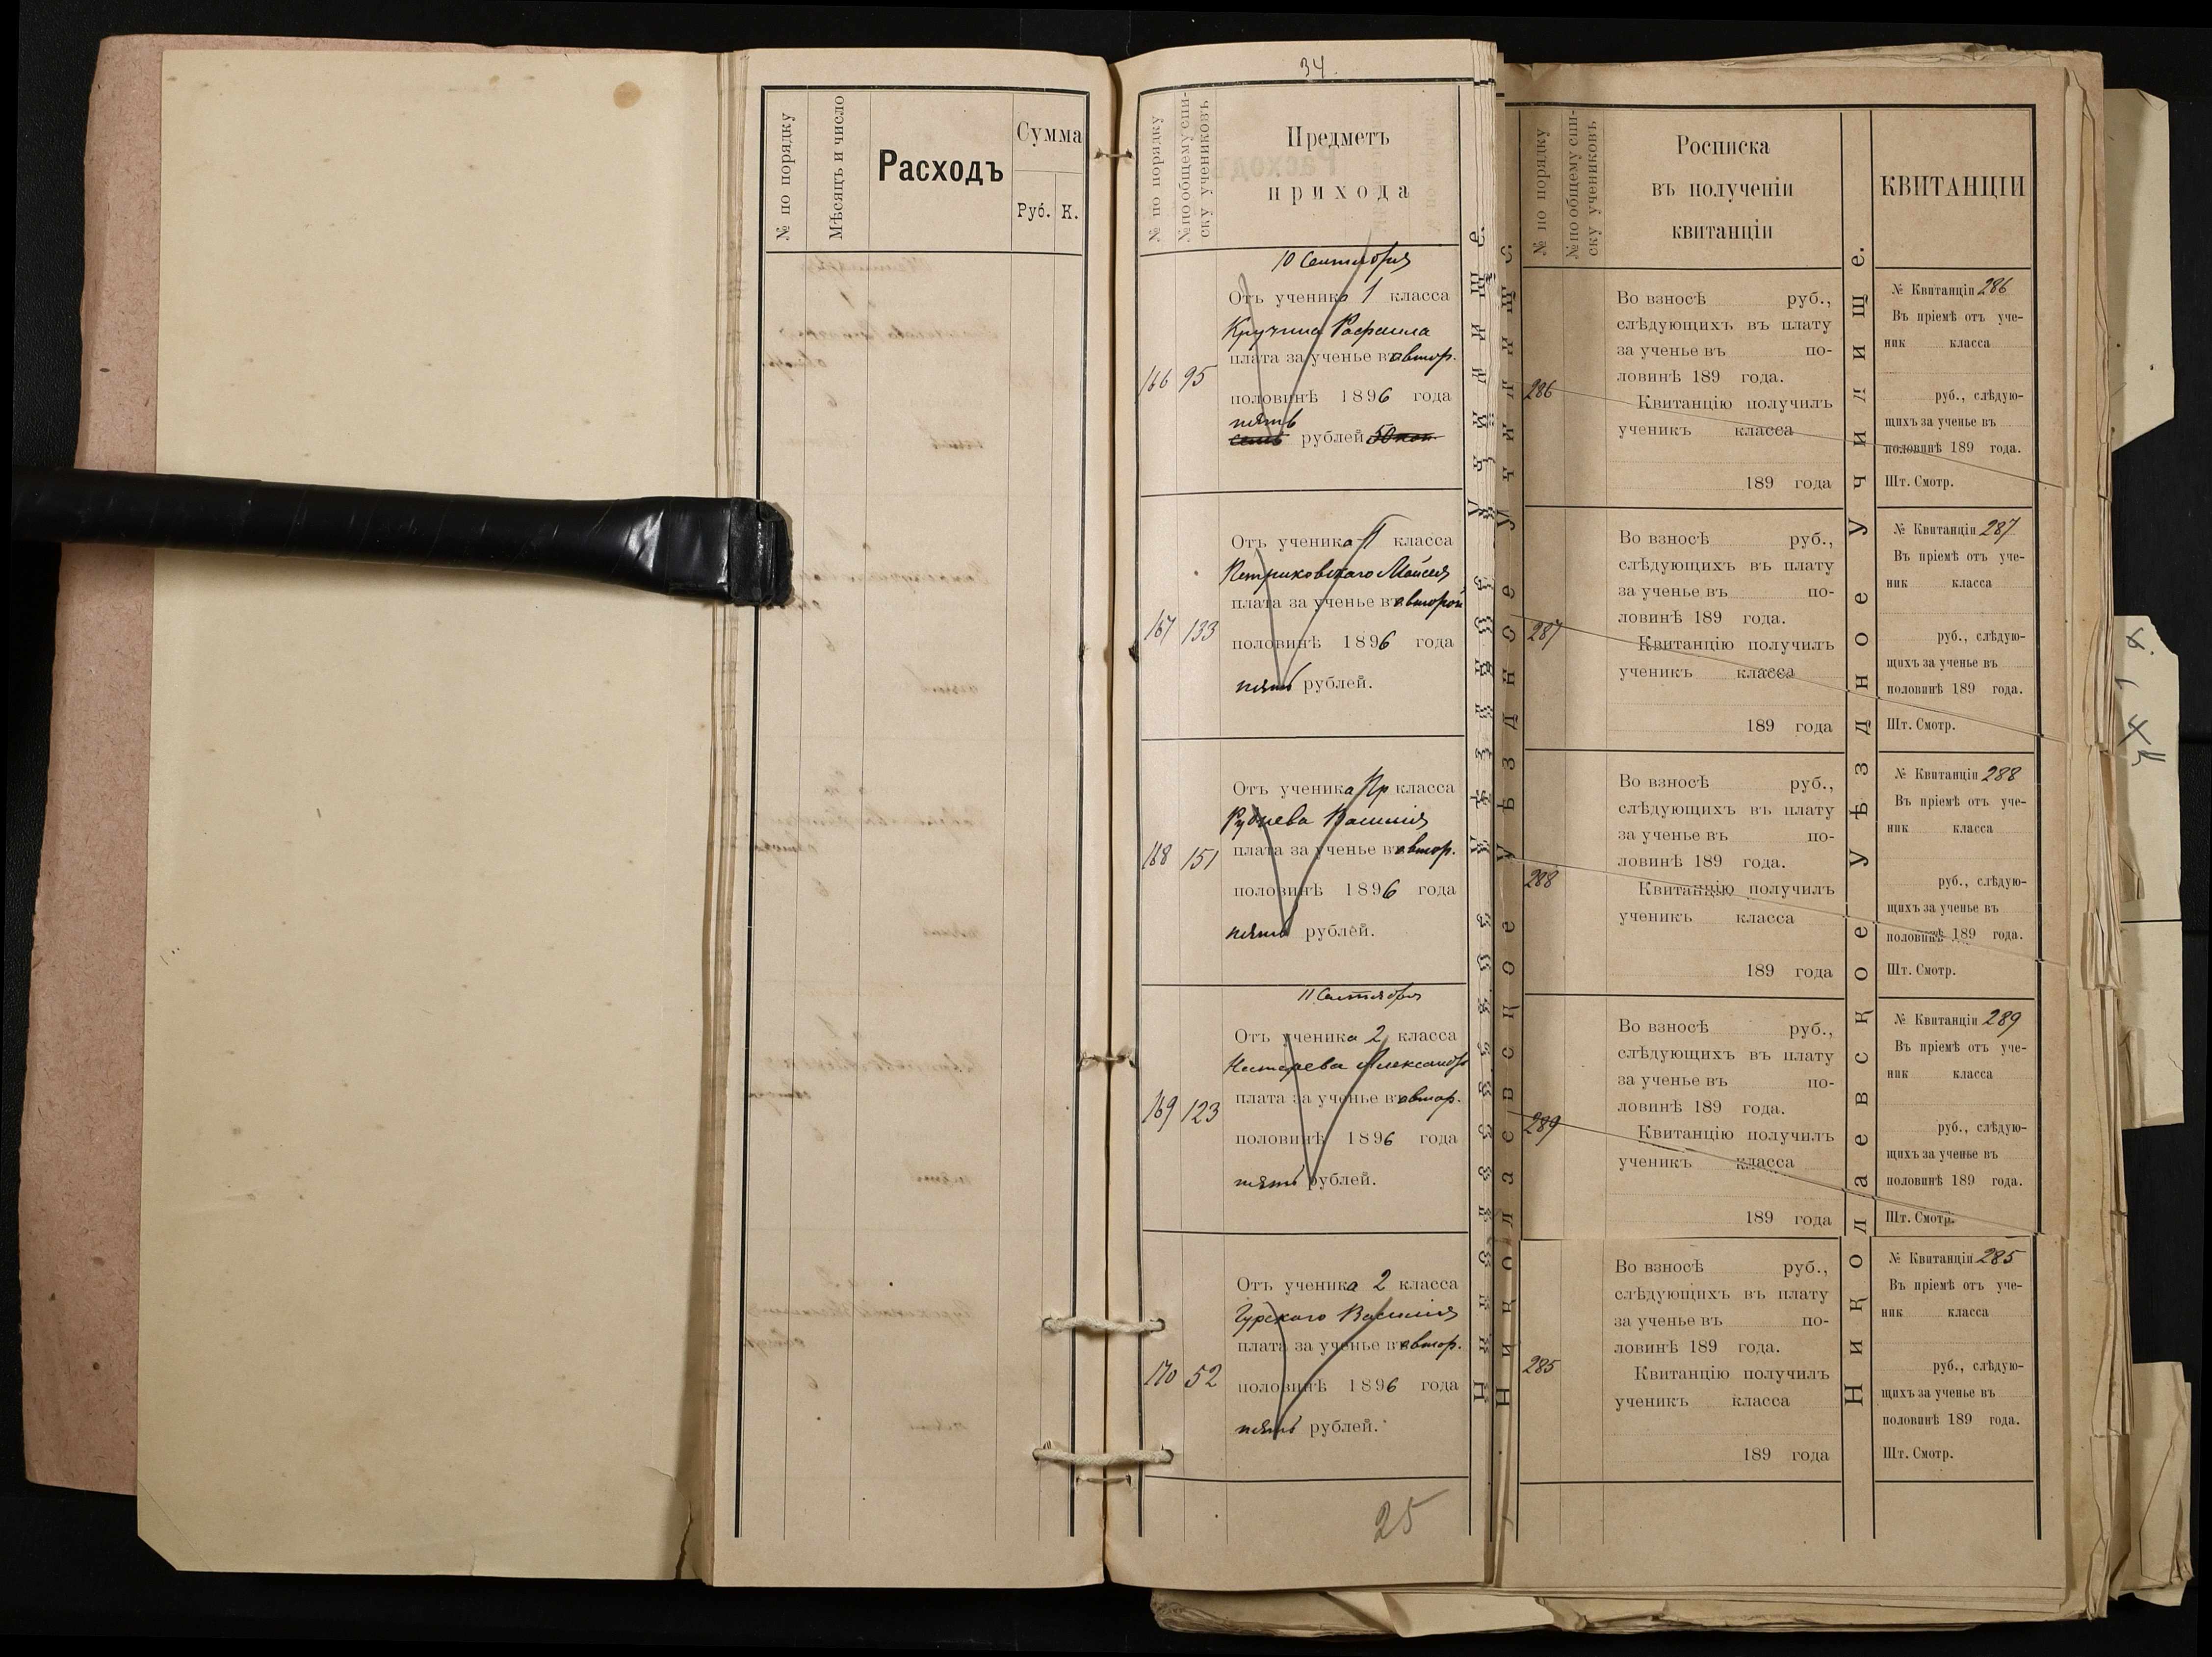 № по порядку
Мѣсяцъ и число
Расходъ
Сумма
Руб. К.
34.
№ по порядку
№ по общему спи-
ску учениковъ
Предметъ
прихода
10 Сентября
Отъ ученика 1 класса
Кручина Рафаила
плата за ученье въ втор.
166 95
половинѣ 1896 года
пять
семь рублей 50 коп.
Отъ ученика II класса
Петриковскаго Моисея
плата за ученье въ второй
167 133
половинѣ 1896 года
пять рублей.
Отъ ученика Пр класса
Руднева Василія
плата за ученье въ втор.
168 151
половинѣ 1896 года
пять рублей.
11 Сентября
Отъ ученика 2 класса
Нестерева Александра
плата за ученье въ втор.
169 123
половинѣ 1896 года
пять рублей.
Отъ ученика 2 класса
Гурскаго Василія
плата за ученье въ втор.
170 52
половинѣ 1896 года
пять рублей.
25
Николаевское Уѣздное Училище.
№ по порядку
№ по общему спи-
ску учениковъ
Росписка
въ полученіи
квитанціи
286
Во взносѣ руб.,
слѣдующихъ въ плату
за ученье въ по-
ловинѣ 189 года.
Квитанцію получилъ
ученикъ класса
189 года
287
Во взносѣ руб.,
слѣдующихъ въ плату
за ученье въ по-
ловинѣ 189 года.
Квитанцію получилъ
ученикъ класса
189 года
288
Во взносѣ руб.,
слѣдующихъ въ плату
за ученье въ по-
ловинѣ 189 года.
Квитанцію получилъ
ученикъ класса
189 года
289
Во взносѣ руб.,
слѣдующихъ въ плату
за ученье въ по-
ловинѣ 189 года.
Квитанцію получилъ
ученикъ класса
189 года
285
Во взносѣ руб.,
слѣдующихъ въ плату
за ученье въ по-
ловинѣ 189 года.
Квитанцію получилъ
ученикъ класса
189 года
Николаевское Уѣздное Училище.
КВИТАНЦІИ
№ Квитанціи 286
Въ пріемѣ отъ уче-
ник класса
руб., слѣдую-
щихъ за ученье въ
половинѣ 189 года.
Шт. Смотр.
№ Квитанціи 287
Въ пріемѣ отъ уче-
ник класса
руб., слѣдую-
щихъ за ученье въ
половинѣ 189 года.
Шт. Смотр.
№ Квитанціи 288
Въ пріемѣ отъ уче-
ник класса
руб., слѣдую-
щихъ за ученье въ
половинѣ 189 года.
Шт. Смотр.
№ Квитанціи 289
Въ пріемѣ отъ уче-
ник класса
руб., слѣдую-
щихъ за ученье въ
половинѣ 189 года.
Шт. Смотр.
№ Квитанціи 285
Въ пріемѣ отъ уче-
ник класса
руб., слѣдую-
щихъ за ученье въ
половинѣ 189 года.
Шт. Смотр.